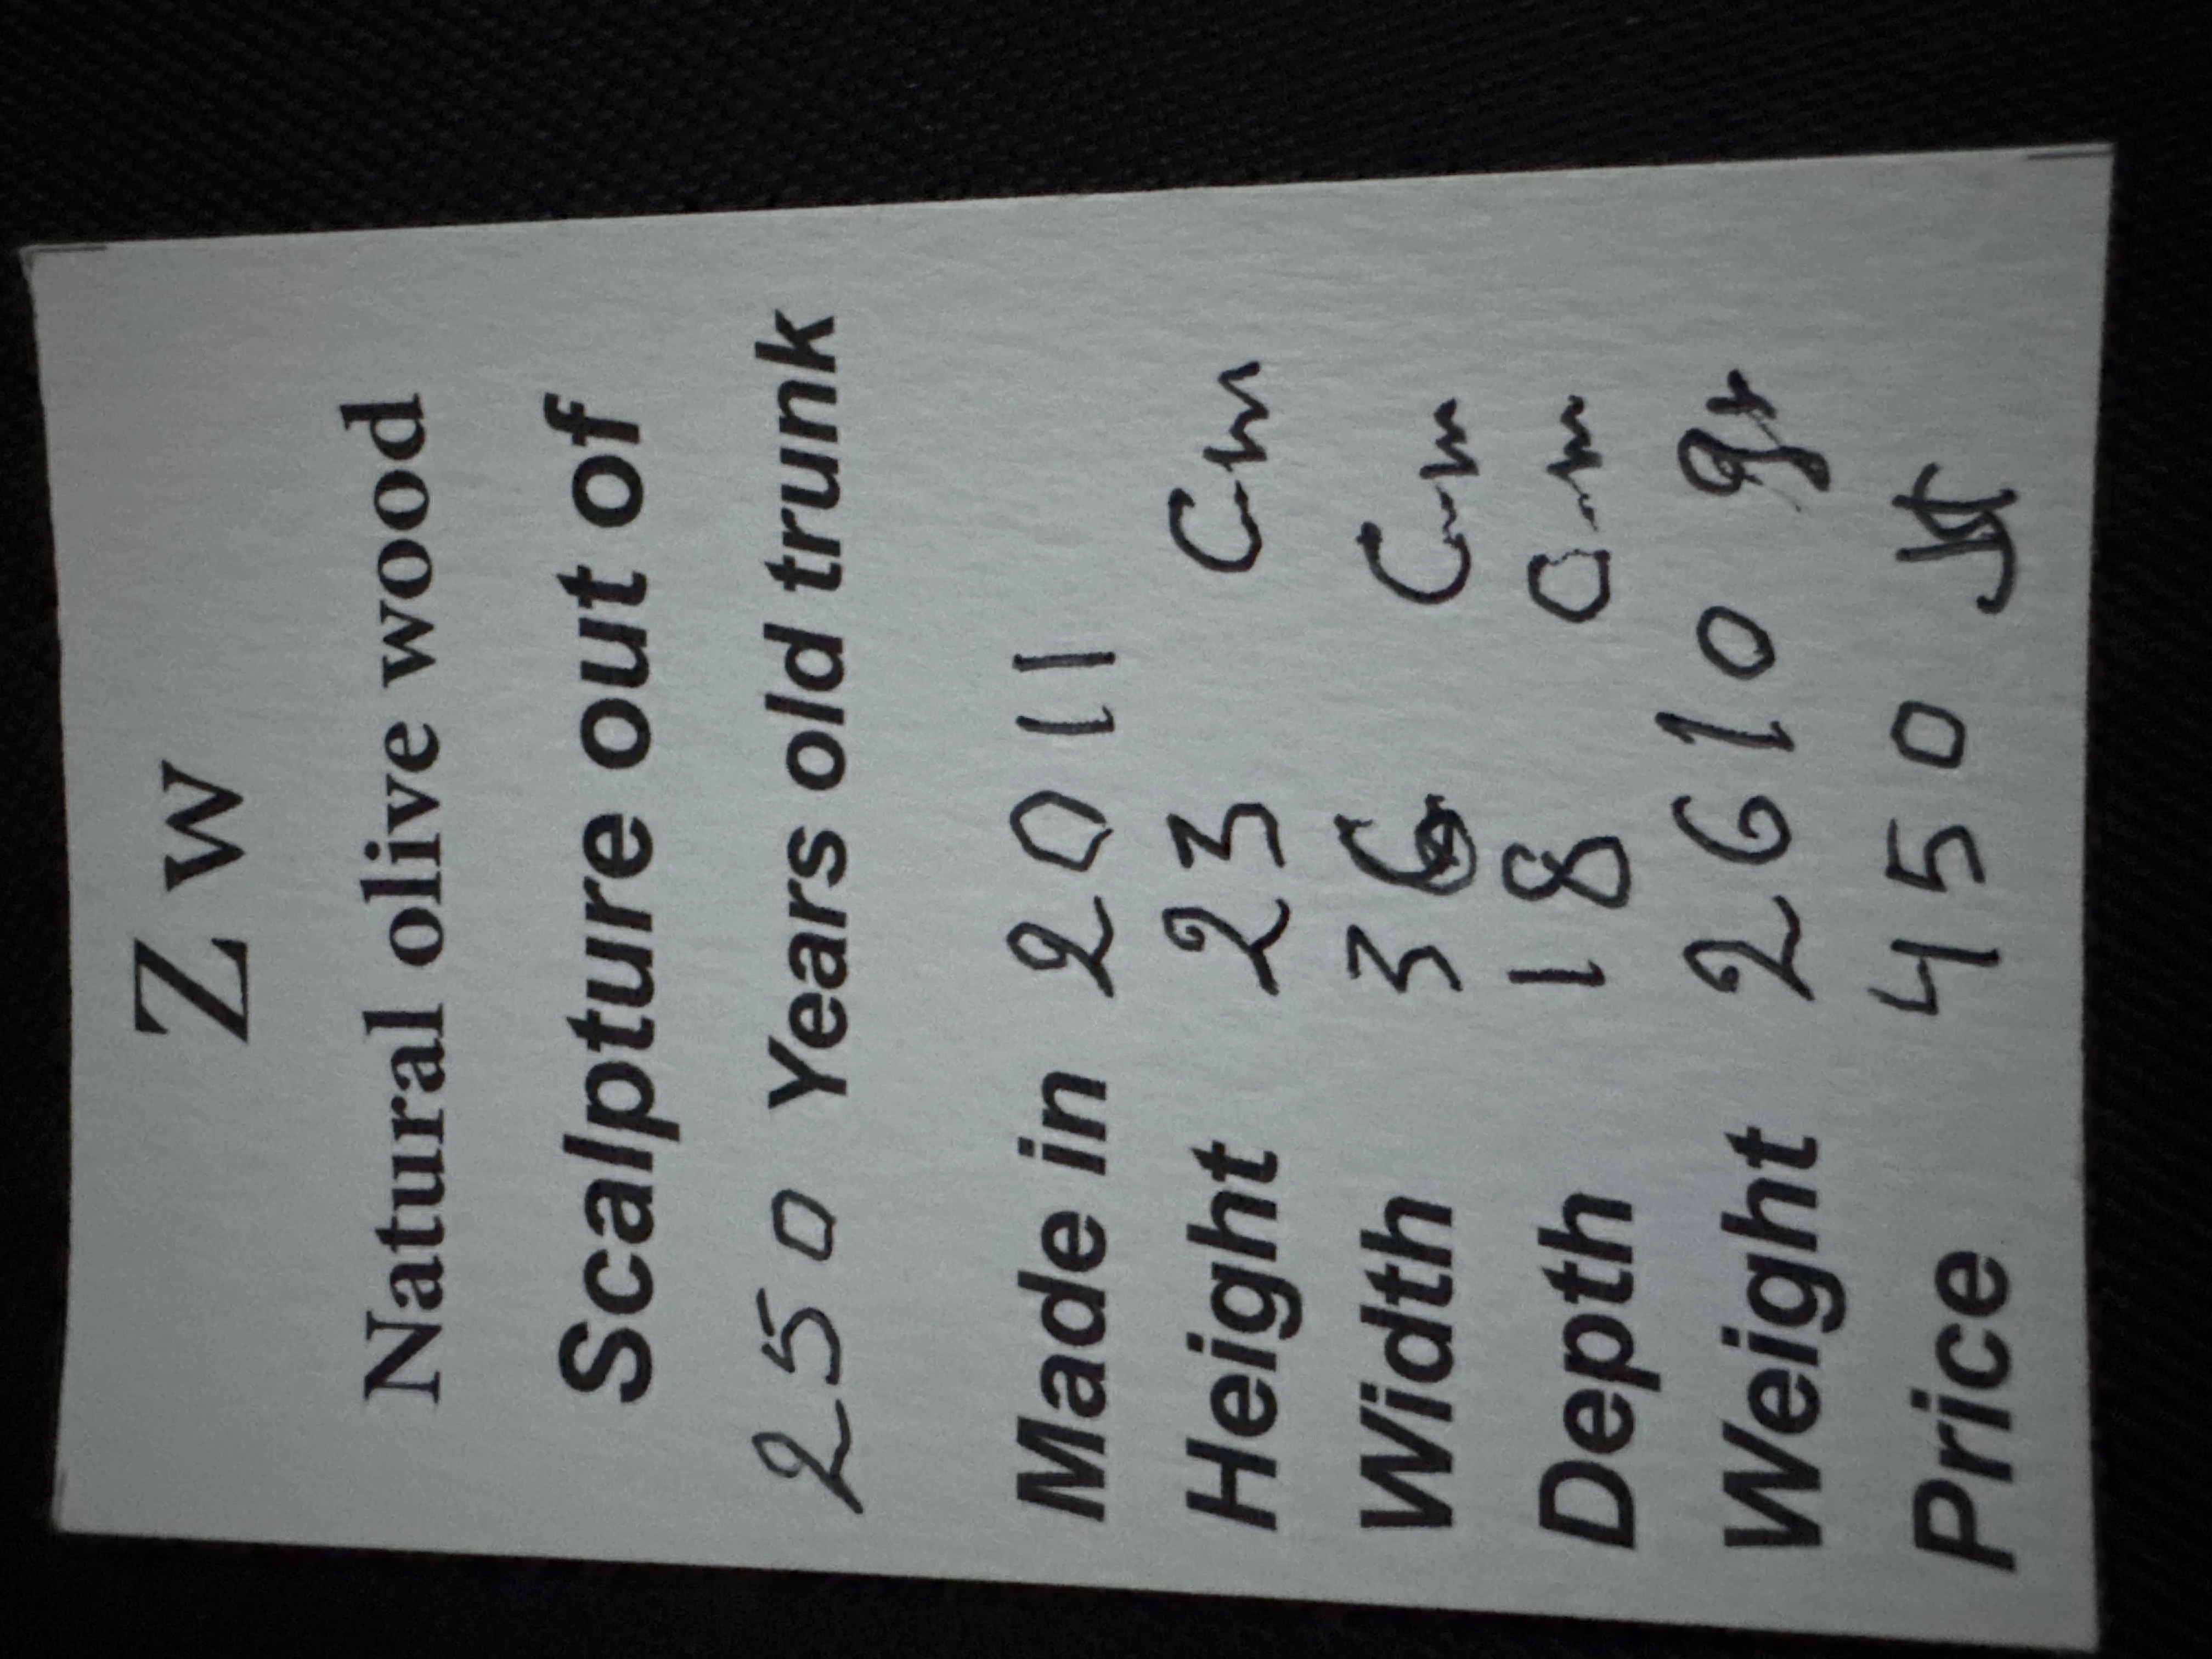 Z w
Natural olive wood
Scalpture out of
250 Years old trunk
Made in 2011
Height 23 Cm
Width 36 Cm
Depth 18 Cm
Weight 2610 gr
Price 450